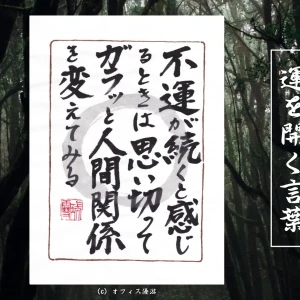 運を開く言葉
不運が続くと感じ
るときは思い切って
ガラッと人間関係
を変えてみる
(c) オフィス湯沼